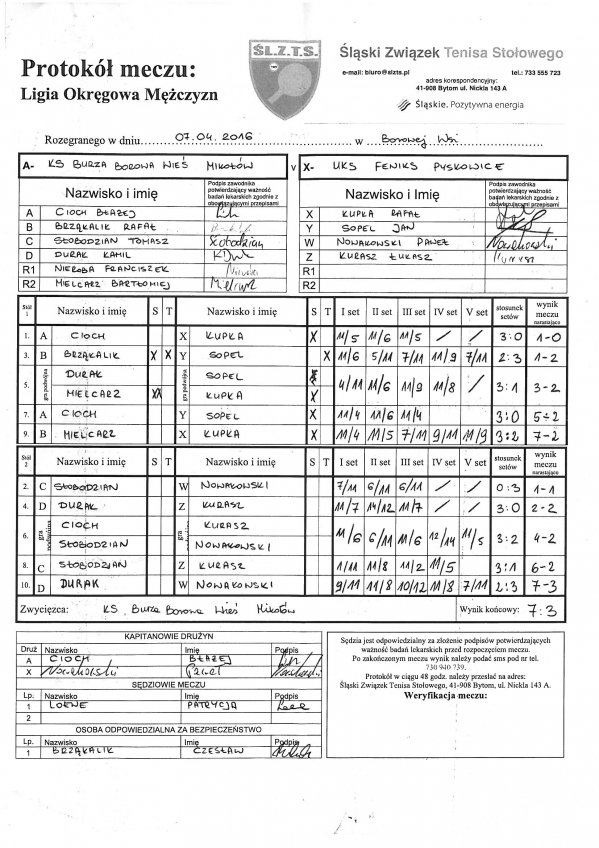 ŚL.Z.T.S.
Śląski Związek Tenisa Stołowego
Protokół meczu:
Ligia Okręgowa Mężczyzn
e-mail: biuro@slzts.pl tel.: 733 555 723
adres korespondencyjny:
41-908 Bytom ul. Nickla 143 A
Śląskie. Pozytywna energia
Rozegranego w dniu 07.04.2016 w Borowej Wsi
A- KS BURZA BOROWA WIEŚ MIKOŁÓW v X- UKS FENIKS PYSKOWICE
Nazwisko i imię Podpis zawodnika potwierdzający ważność badań lekarskich zgodnie z obowiązującymi przepisami Nazwisko i Imię Podpis zawodnika potwierdzający ważność badań lekarskich zgodnie z obowiązującymi przepisami
A CIOCH BŁAŻEJ X KUPKA RAFAŁ
B BRZĄKALIK RAFAŁ Y SOPEL JAN
C SŁOBODZIAN TOMASZ Słobodzian W NOWAKOWSKI PAWEŁ Nowakowski
D DURAK KAMIL Z KURASZ ŁUKASZ
R1 NIEROBA FRANCISZEK R1
R2 MIELCARZ BARTŁOMIEJ R2
Stół 1 Nazwisko i imię S T Nazwisko i imię S T I set II set III set IV set V set stosunek setów wynik meczu narastająco
1. A CIOCH X KUPKA X 11/5 11/6 11/5 / / 3:0 1-0
3. B BRZĄKALIK X X Y SOPEL X 11/6 5/11 7/11 11/9 7/11 2:3 1-2
5. gra podwójna DURAK gra podwójna SOPEL X 4/11 11/6 11/9 11/8 / 3:1 3-2
MIELCARZ XX KUPKA X
7. A CIOCH Y SOPEL X 11/4 11/6 11/4 3:0 5-2
9. B MIELCARZ X KUPKA X 11/4 11/5 7/11 9/11 11/9 3:2 7-2
Stół 2 Nazwisko i imię S T Nazwisko i imię S T I set II set III set IV set V set stosunek setów wynik meczu narastająco
2. C SŁOBODZIAN W NOWAKOWSKI 7/11 6/11 6/11 / / 0:3 1-1
4. D DURAK Z KURASZ 11/7 14/12 11/7 / / 3:0 2-2
6. gra podwójna CIOCH gra KURASZ 11/6 6/11 11/6 12/14 11/5 3:2 4-2
SŁOBODZIAN NOWAKOWSKI
8. C SŁOBODZIAN Z KURASZ 1/11 11/8 11/2 11/5 3:1 6-2
10. D DURAK W NOWAKOWSKI 9/11 11/8 10/12 11/8 7/11 2:3 7-3
Zwycięzca: KS Burza Borowa Wieś Mikołów Wynik końcowy: 7:3
KAPITANOWIE DRUŻYN
Druż Nazwisko Imię Podpis
A CIOCH BŁAŻEJ
X Nowakowski Paweł Nowakowski
SĘDZIOWIE MECZU
Lp. Nazwisko Imię Podpis
1 PATRYCJA
2
OSOBA ODPOWIEDZIALNA ZA BEZPIECZEŃSTWO
Lp. Nazwisko Imię Podpis
1 BRZĄKALIK CZESŁAW
Sędzia jest odpowiedzialny za złożenie podpisów potwierdzających
ważność badań lekarskich przed rozpoczęciem meczu.
Po zakończonym meczu wynik należy podać sms pod nr tel.
730 940 739.
Protokół w ciągu 48 godz. należy przesłać na adres:
Śląski Związek Tenisa Stołowego, 41-908 Bytom, ul. Nickla 143 A.
Weryfikacja meczu: